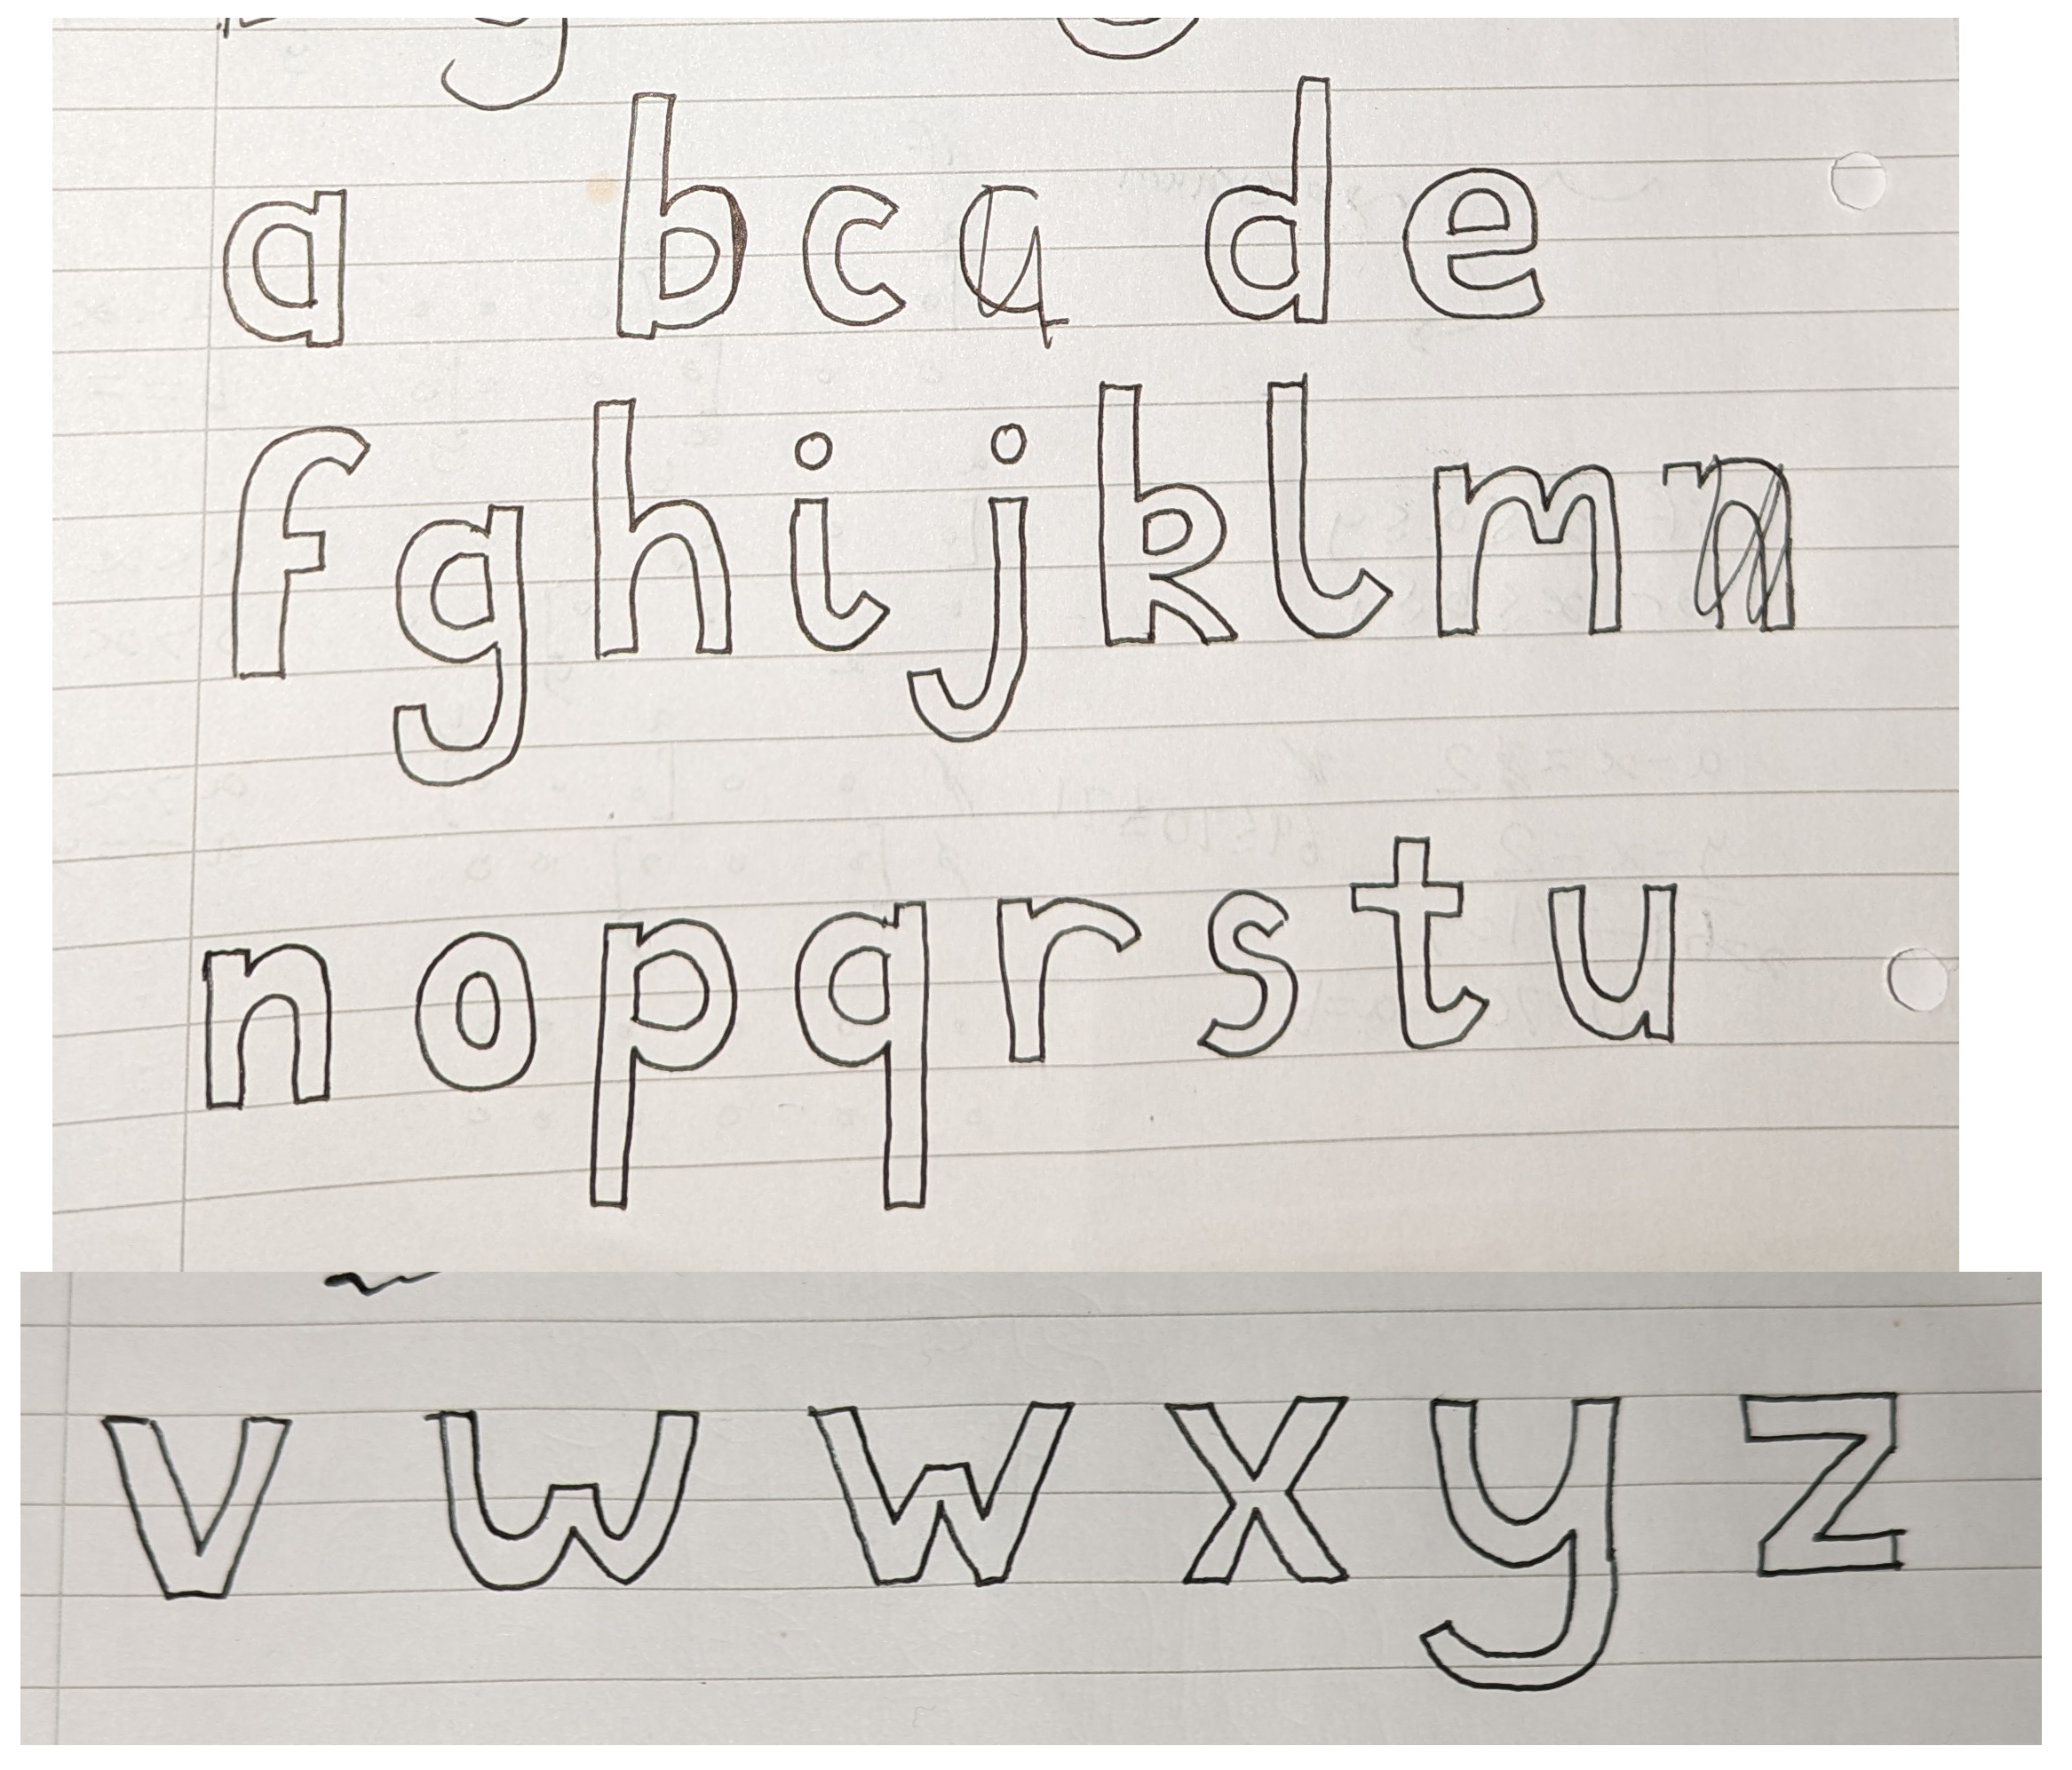 a b c d e
f g h i j k l m
n o p q r s t u
v w w x y z